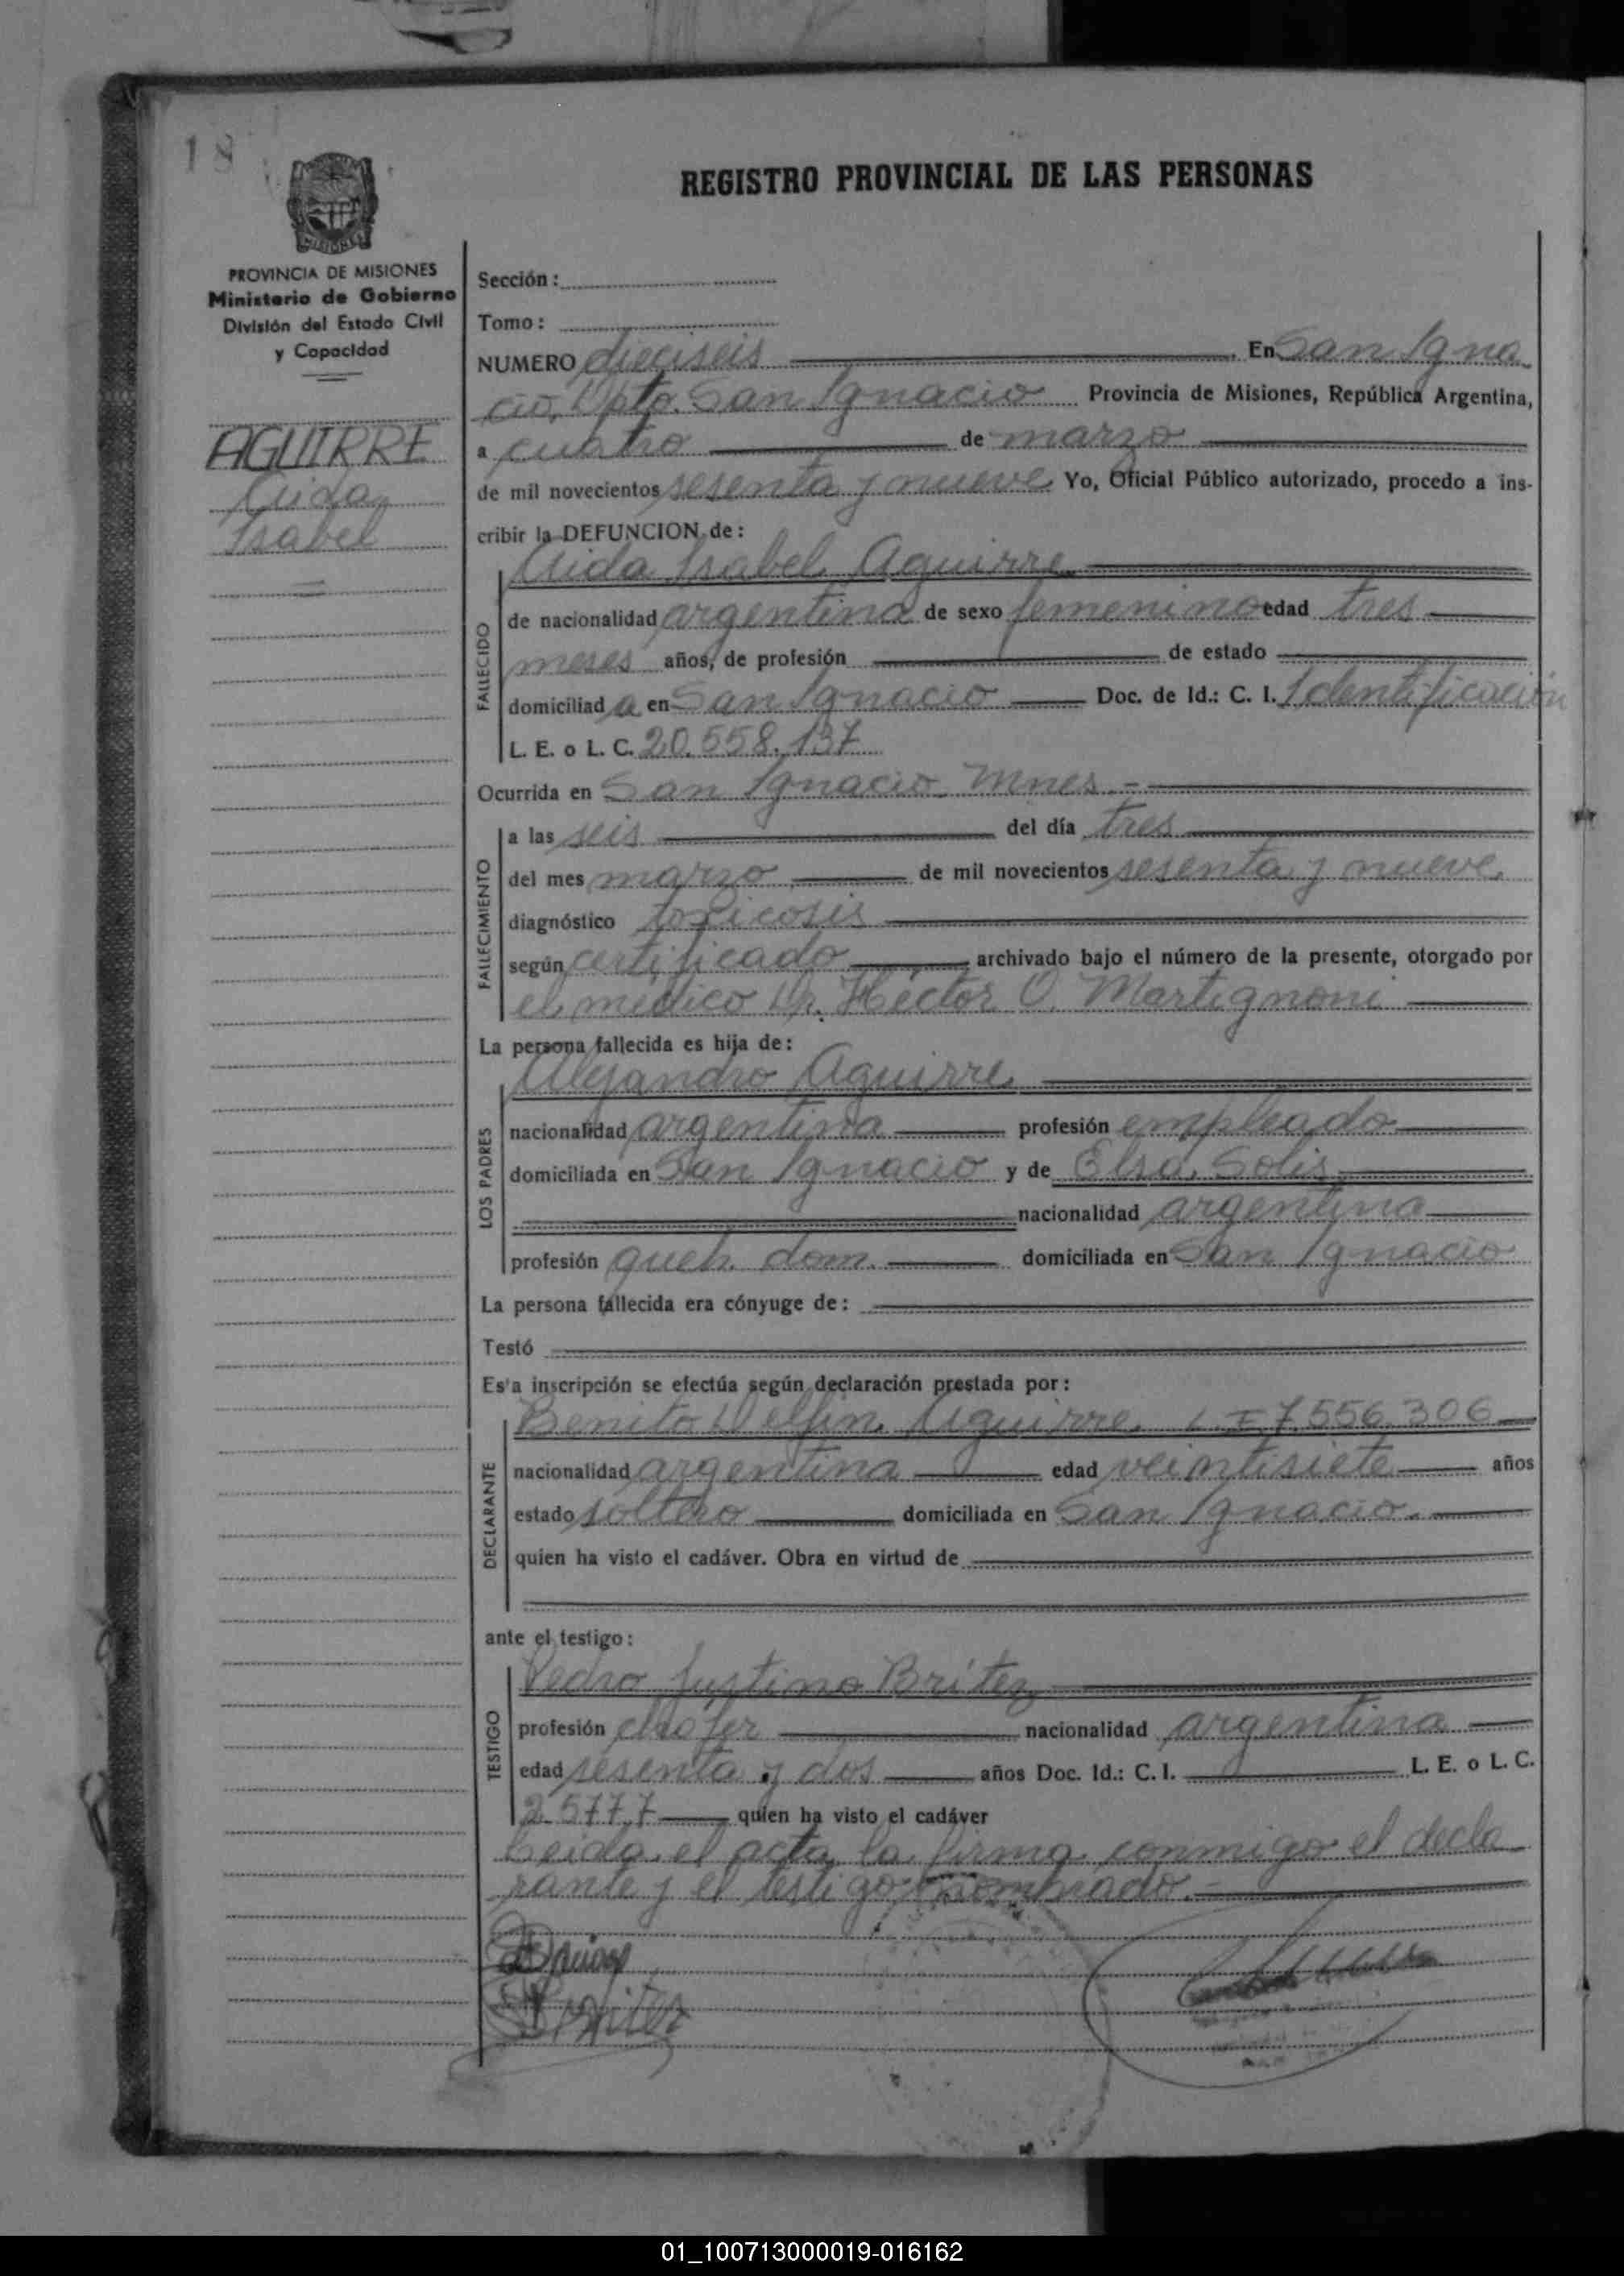 18
REGISTRO PROVINCIAL DE LAS PERSONAS
MISIONES
PROVINCIA DE MISIONES
Ministerio de Gobierno
División del Estado Civil
y Capacidad
AGUIRRE
Aida
Isabel
Sección:
Tomo:
NUMERO dieciseis En San Igna
cio, Dpto. San Ignacio Provincia de Misiones, República Argentina,
a cuatro de marzo
de mil novecientos sesenta y nueve Yo, Oficial Público autorizado, procedo a ins-
cribir la DEFUNCION de:
Aida Isabel Aguirre
FALLECIDO
de nacionalidad argentina de sexo femenino edad tres
meses años, de profesión de estado
domiciliad a en San Ignacio Doc. de Id.: C. I. Identificación
L. E. o L. C. 20.558.137
Ocurrida en San Ignacio Mnes.-
FALLECIMIENTO
a las seis del día tres
del mes marzo de mil novecientos sesenta y nueve
diagnóstico toxicosis
según certificado archivado bajo el número de la presente, otorgado por
el médico Dr. Héctor O. Martignoni
La persona fallecida es hija de:
Alejandro Aguirre
LOS PADRES
nacionalidad argentina profesión empleado
domiciliada en San Ignacio y de Elsa Solis
nacionalidad argentina
profesión queh. dom. domiciliada en San Ignacio
La persona fallecida era cónyuge de:
Testó
Es'a inscripción se efectúa según declaración prestada por:
Benito Delfin Aguirre L.E 7.556.306
DECLARANTE
nacionalidad argentina edad veintisiete años
estado soltero domiciliada en San Ignacio.
quien ha visto el cadáver. Obra en virtud de
ante el testigo:
Pedro Justino Britez
TESTIGO
profesión chofer nacionalidad argentina
edad sesenta y dos años Doc. Id.: C. I. L. E. o L. C.
2.5777 quien ha visto el cadáver
Leida el acta la firma conmigo el decla
rante y el testigo nombrado.-
Britez
01_100713000019-016162